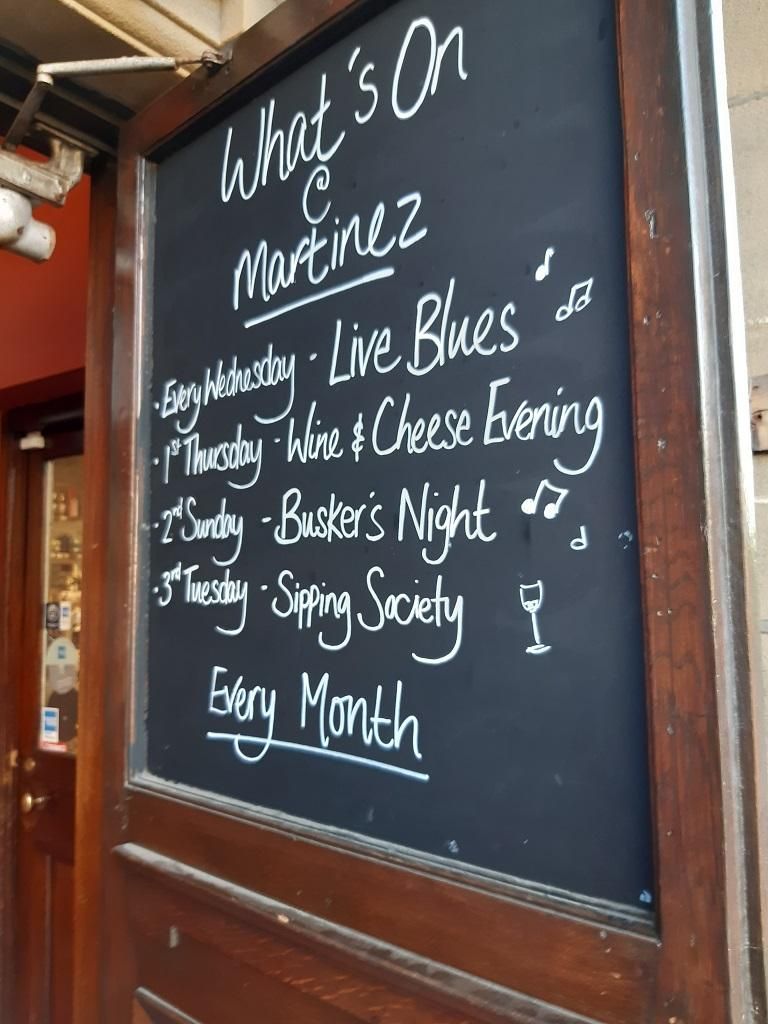 What's On
@
Martinez
· Every Wednesday - Live Blues
· 1st Thursday - Wine & Cheese Evening
· 2nd Sunday - Busker's Night
· 3rd Tuesday - Sipping Society
Every Month